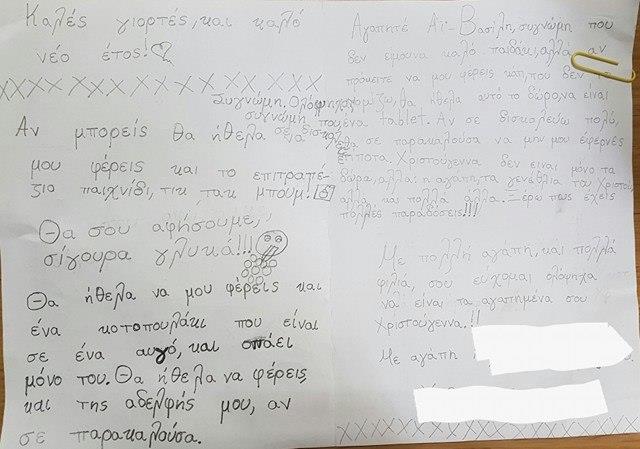 Καλές γιορτές, και καλό
νέο έτος!
Συγνώμη. Ολόψηχα
συγνώμη που
σε
Αν μπορείς θα ήθελα να
μου φέρεις και το επιτραπέ-
ζιο παιχνίδι, τικ τακ μπουμ! 5
Θα σου αφήσουμε,
σίγουρα γλυκά!!!
Θα ήθελα να μου φέρεις και
ένα κοτοπουλάκι που είναι
σε ένα αυγό, και σπάει
μόνο του. Θα ήθελα να φέρεις
και της αδελφής μου, αν
σε παρακαλούσα.
Αγαπητέ Αϊ-Βασίλη, συγνώμη που
δεν εμουνα καλό παιδάκι, αλλά αν
πρόκειτε να μου φέρεις κάτι, που δεν
νομίζω, θα ήθελα αυτό το δώρο, να είναι
ένα tablet. Αν σε δισκολεύω πολύ,
θα σε παρακαλούσα να μην μου έφερνες
τίποτα. Χριστούγεννα δεν ειναι μόνο τα
δώρα, αλλα: η αγάπη, τα γενέθλια του Χριστού
άλλα και πολλά άλλα. Ξέρω πως έχεις
πολλές παραδόσεις!!!
Με πολλή αγάπη, και πολλά
φιλιά, σου εύχομαι ολόψηχα
να είναι τα αγαπημένα σου
Χριστούγεννα.!!
Με αγάπη